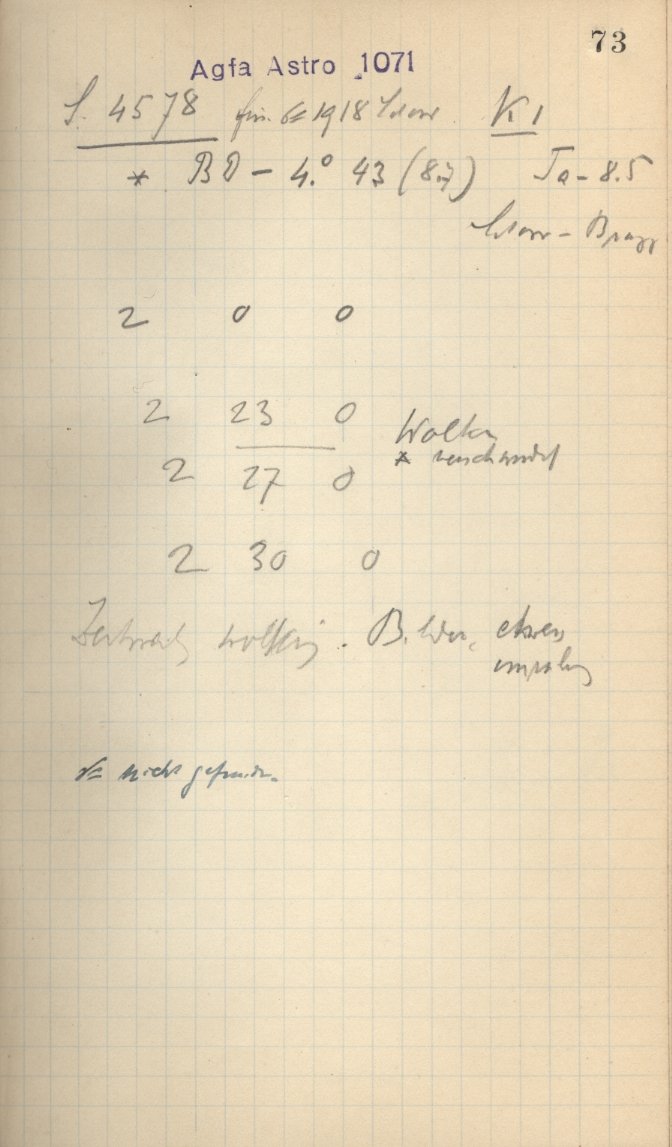 73
Agfa Astro 1071
S. 4578 für 1918 K1
* BD - 4.° 43 (8.7) Ta - 8.5
2 0 0
2 23 0
Wolken
* verschwindet
2 27 0
2 30 0
Zeitweilig wolkig. Bilder etwas
unruhig
nicht gefunden.